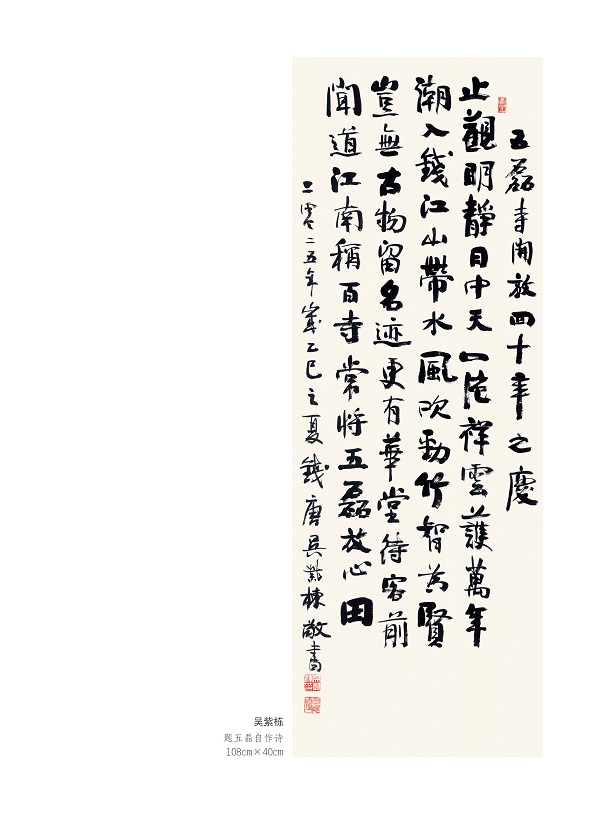 五磊寺開放四十年之慶
止觀明靜日中天一院祥雲護萬年
潮入錢江山帶水風吹勁竹智為賢
豈無古物留名迹更有華堂待客前
聞道江南稱百寺常將五磊放心田
二零二五年歲乙巳之夏錢唐吳紫棟敬書
吴紫栋
题五磊自作诗
108cm×40cm